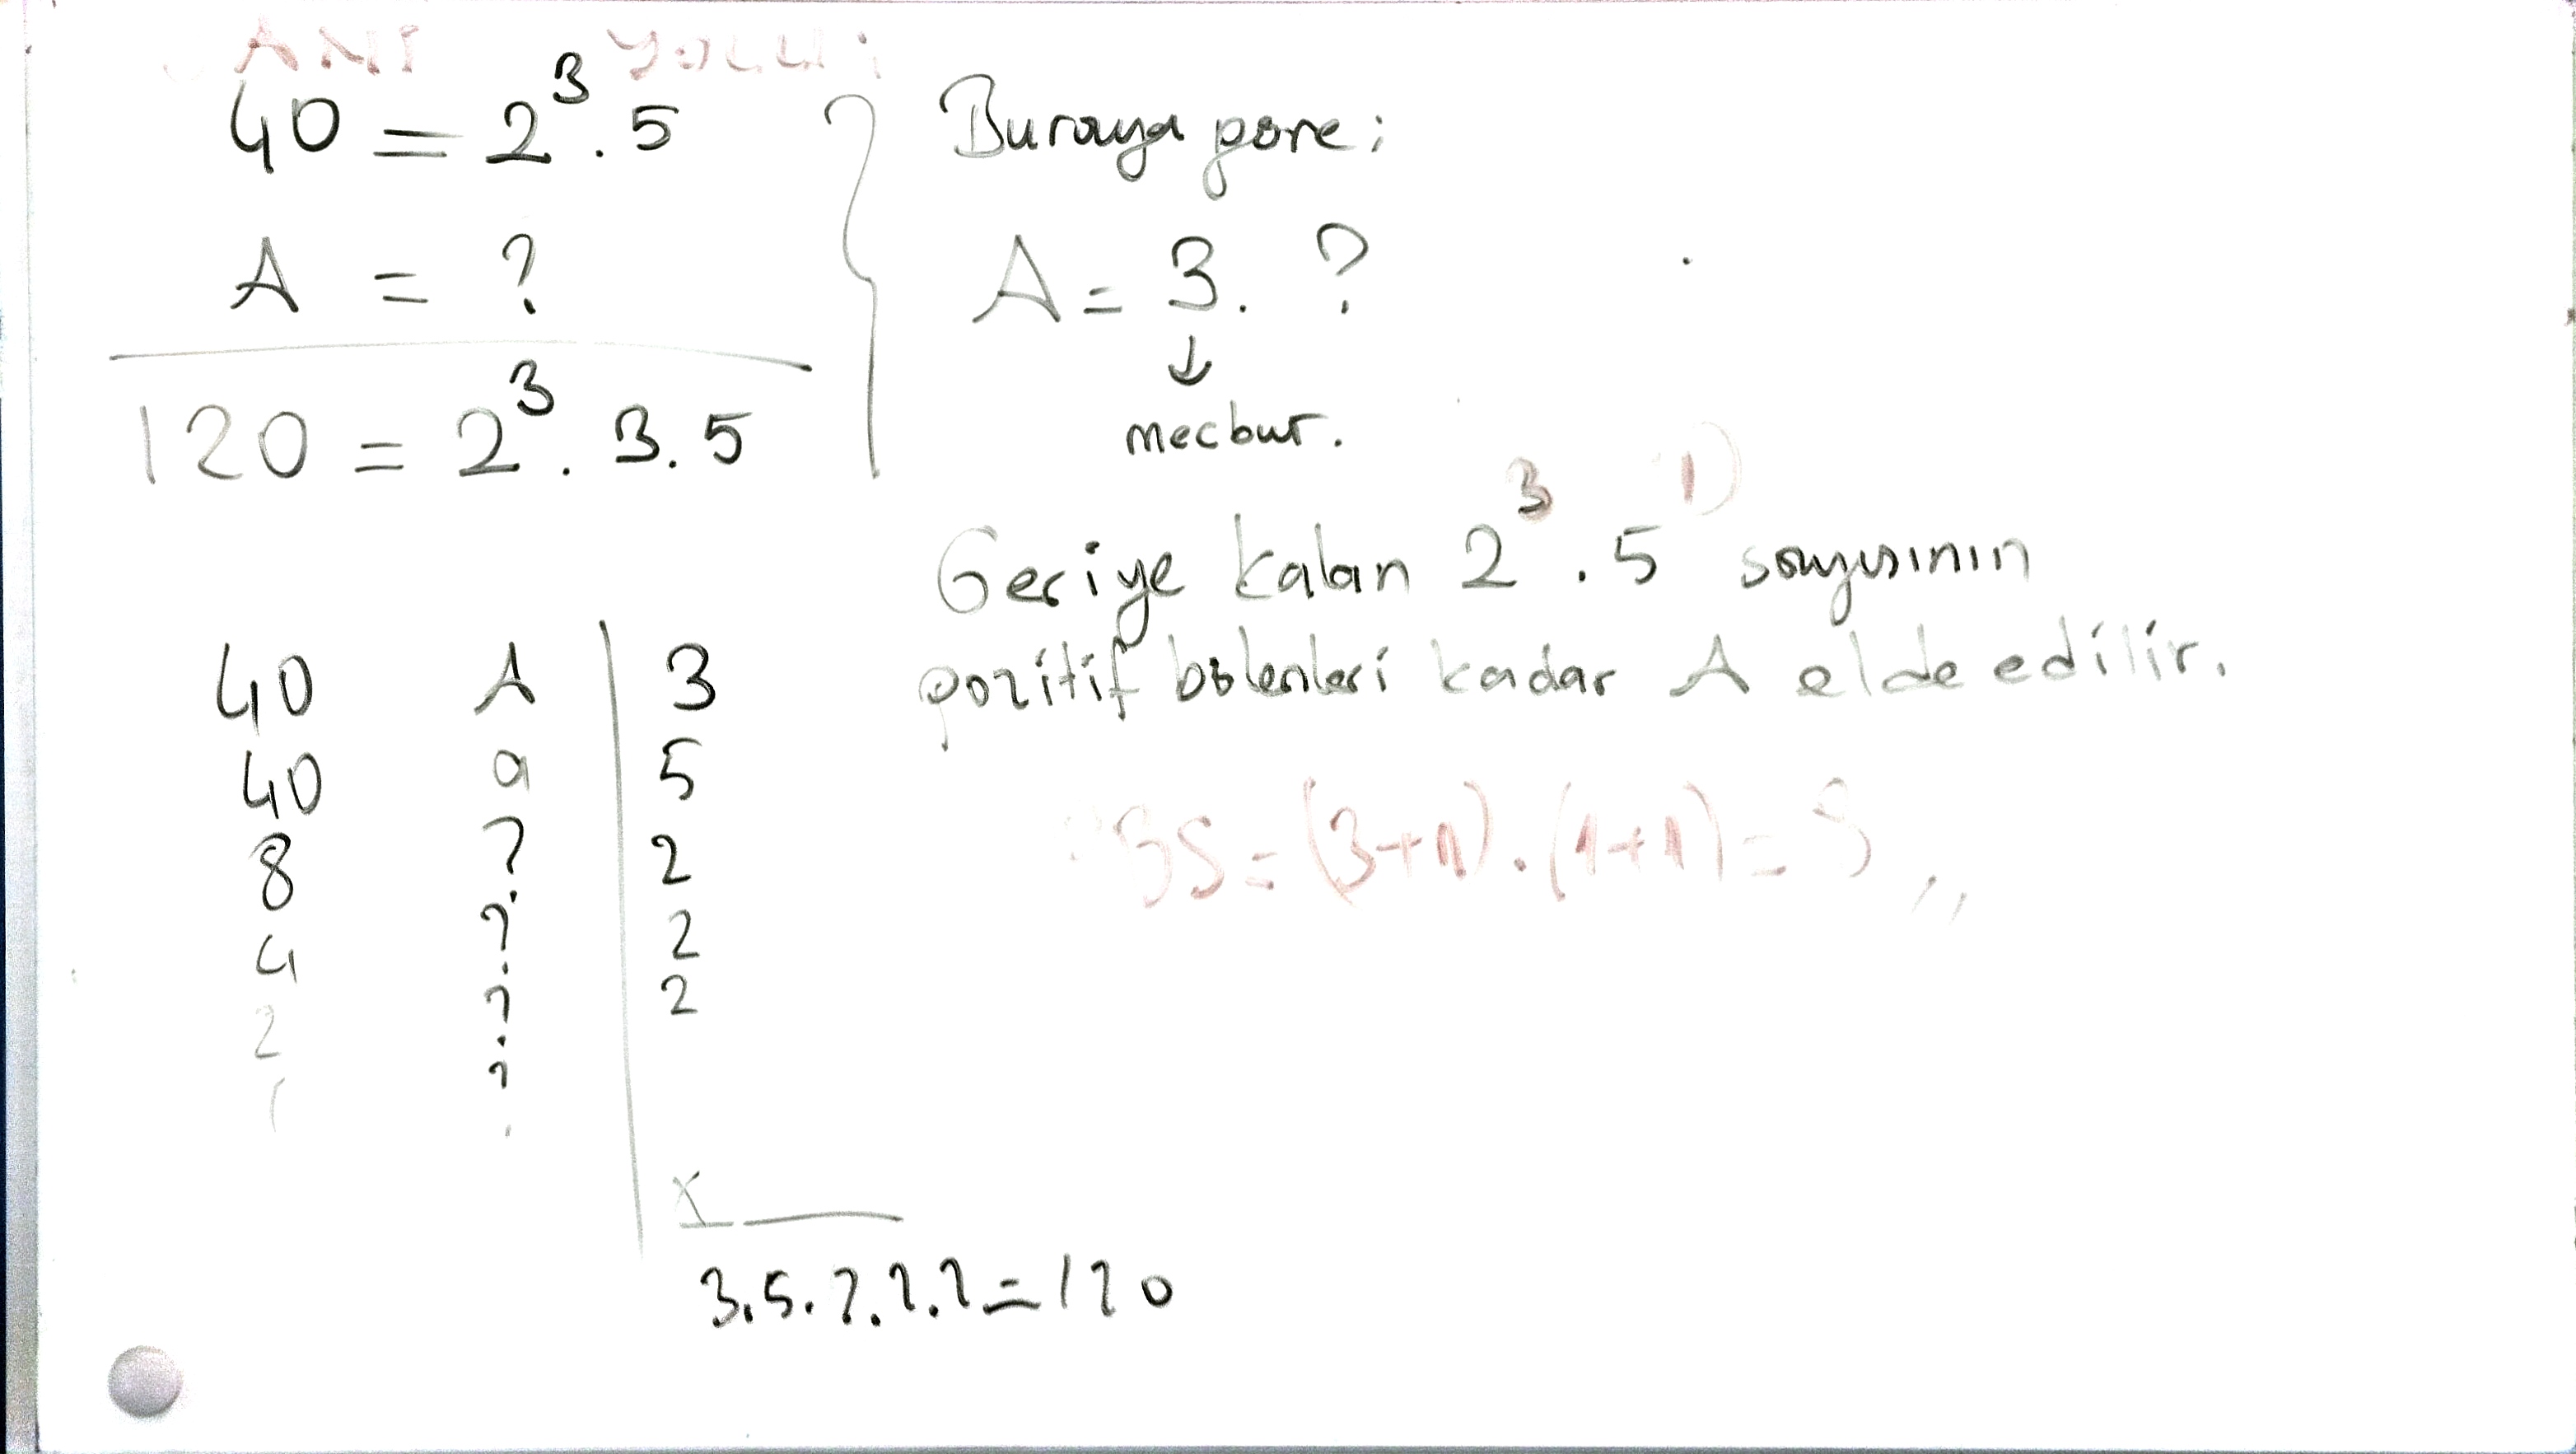 40 = 2³ . 5
A = ?
120 = 2³ . 3 . 5
Buraya göre ;
A = 3 . ?
↓
mecbur.
Geriye kalan 2³ . 5¹ sayısının
pozitif bölenleri kadar A elde edilir.
BS = (3+1) . (1+1) = 8 ,,
40 A | 3
40 a | 5
8 ? | 2
4 ? | 2
2 ? | 2
1 ?
x
3.5.2.2.2 = 120